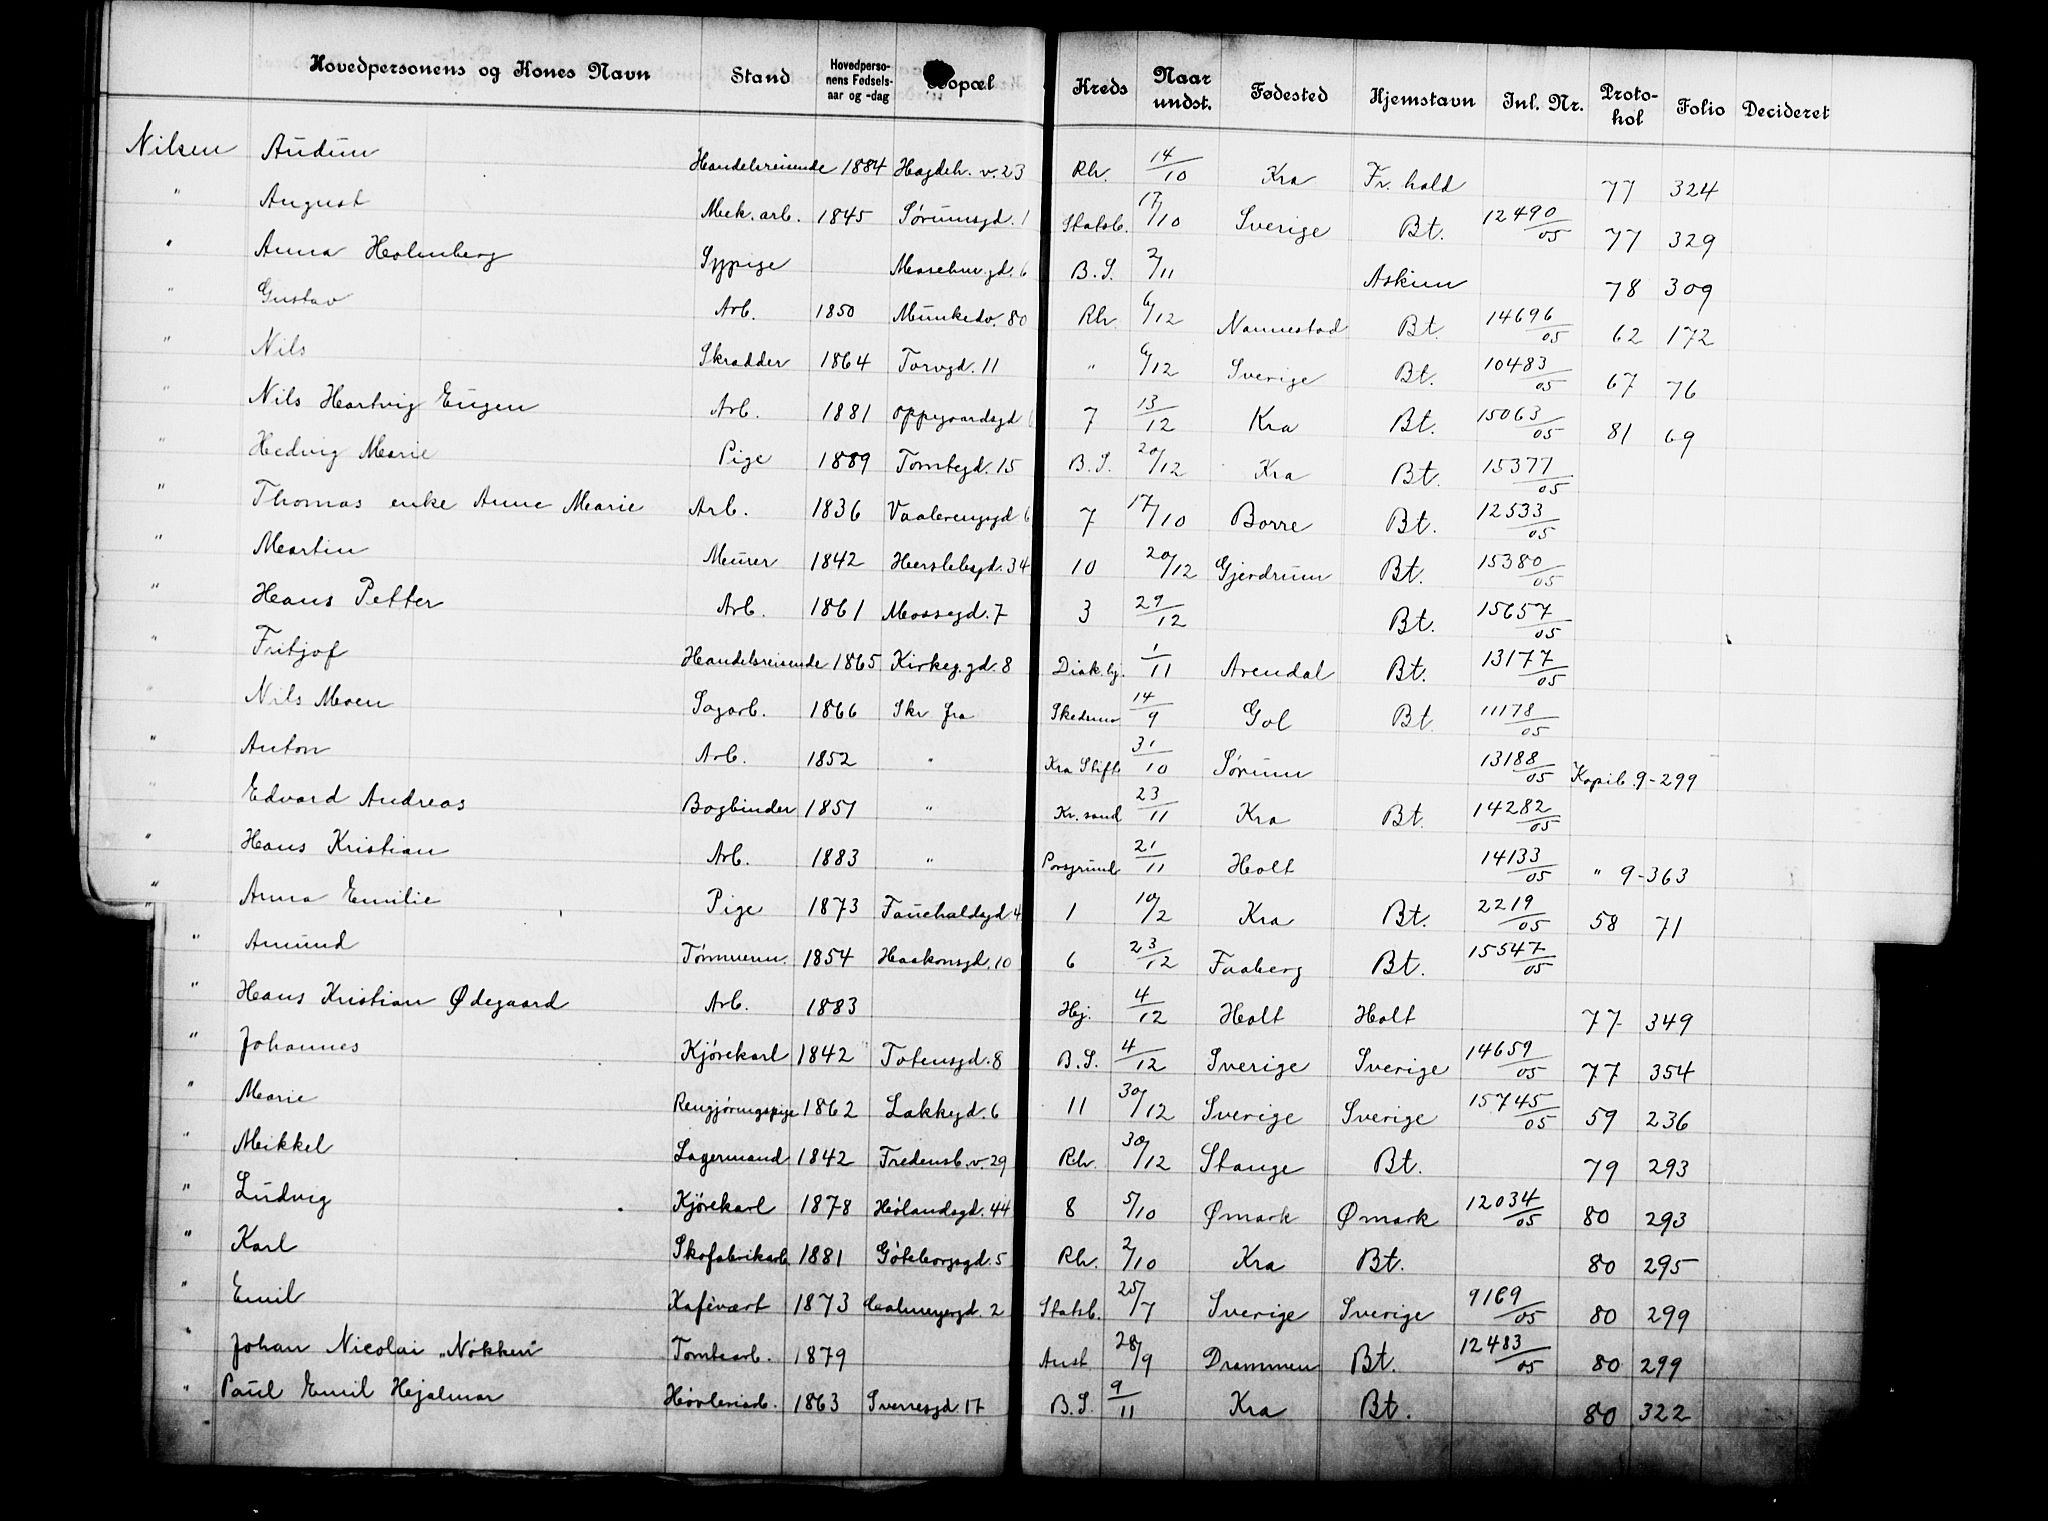 Hovedpersonens og Kones Navn Stand Hovedpersonens Fødselsaar og -dag Bopæl Kreds Naar undst. Fødested Hjemstavn Inl. Nr. Protokol Folio Decideret
Nilsen Audun Handelsreisende 1884 Hagdeh. v. 23 Rh. 14/10 Kra Fr. hald 77 324
" August Mek. arb. 1845 Sørumsgd. 1 Statsb. 17/10 Sverige Bt. 12490/05 77 329
" Anna Holmberg Sypige gd. 6 B. S. 2/11 Askim 78 309
" Gustav Arb. 1850 Munkedv. 80 Rh. 6/12 Nannestad Bt. 14696/05 62 172
" Nils Skrædder 1864 Torvgd. 11 " 6/12 Sverige Bt. 10483/05 67 76
" Nils Hartvig Eugen Arb. 1881 Oppegaardsgd 7 13/12 Kra Bt. 15063/05 81 69
" Hedvig Marie Pige 1889 Tomtegd. 15 B. S. 20/12 Kra Bt. 15377/05
" Thomas enke Anne Marie Arb. 1836 Vaalerengsgd 6 7 17/10 Borre Bt. 12533/05
" Martin Murer 1842 Herslebsgd. 34 10 20/12 Gjerdrum Bt. 15380/05
" Hans Petter Arb. 1861 Mossegd. 7 3 29/12 Bt. 15657/05
" Fritjof Handelsreisende 1865 Kirkeg. gd. 8 Diak. hj. 1/11 Arendal Bt. 13177/05
" Nils Moen Sagarb. 1866 Skr fra Skedsmo 14/9 Gol Bt. 11178/05
" Anton Arb. 1852 " Kra Stift 31/10 Sørum 13188/05 Kopib. 9-299
" Edvard Andreas Bogbinder 1851 " Kr. sand 23/11 Kra Bt. 14282/05
" Hans Kristian Arb. 1883 " Porsgrund 21/11 Holt 14133/05 " 9-363
" Anna Emilie Pige 1873 Fauchaldsgd 4 1 10/2 Kra Bt. 2219/05 58 71
" Amund Tømmerm. 1854 Haakonsgd. 10 6 23/12 Faaberg Bt. 15547/05
" Hans Kristian Ødegaard Arb. 1883 Hj. 4/12 Holt Holt 77 349
" Johannes Kjørekarl 1842 Totensgd. 8 B. S. 4/12 Sverige Sverige 14659/05 77 354
" Marie Rengjøringspige 1862 Lakkegd. 6 11 30/12 Sverige Sverige 15745/05 59 236
" Mikkel Lagermand 1842 Fredensb. v. 29 Rh. 30/12 Stange Bt. 79 293
" Ludvig Kjørekarl 1878 Hølandsgd. 44 8 5/10 Ømark Ømark 12034/05 80 293
" Karl Skofabrikarb. 1881 Göteborgsgd. 5 Rh. 2/10 Kra Bt. 80 295
" Emil Kafévært 1873 Calmeyergd. 2 Statsb. 25/7 Sverige Sverige 9169/05 80 299
" Johan Nicolai „Nökken" Tomtearb. 1879 Aust 28/9 Drammen Bt. 12483/05 80 299
" Paul Emil Hjalmar Høvleriarb. 1863 Sverresgd 17 B. S. 9/11 Kra Bt. 80 322